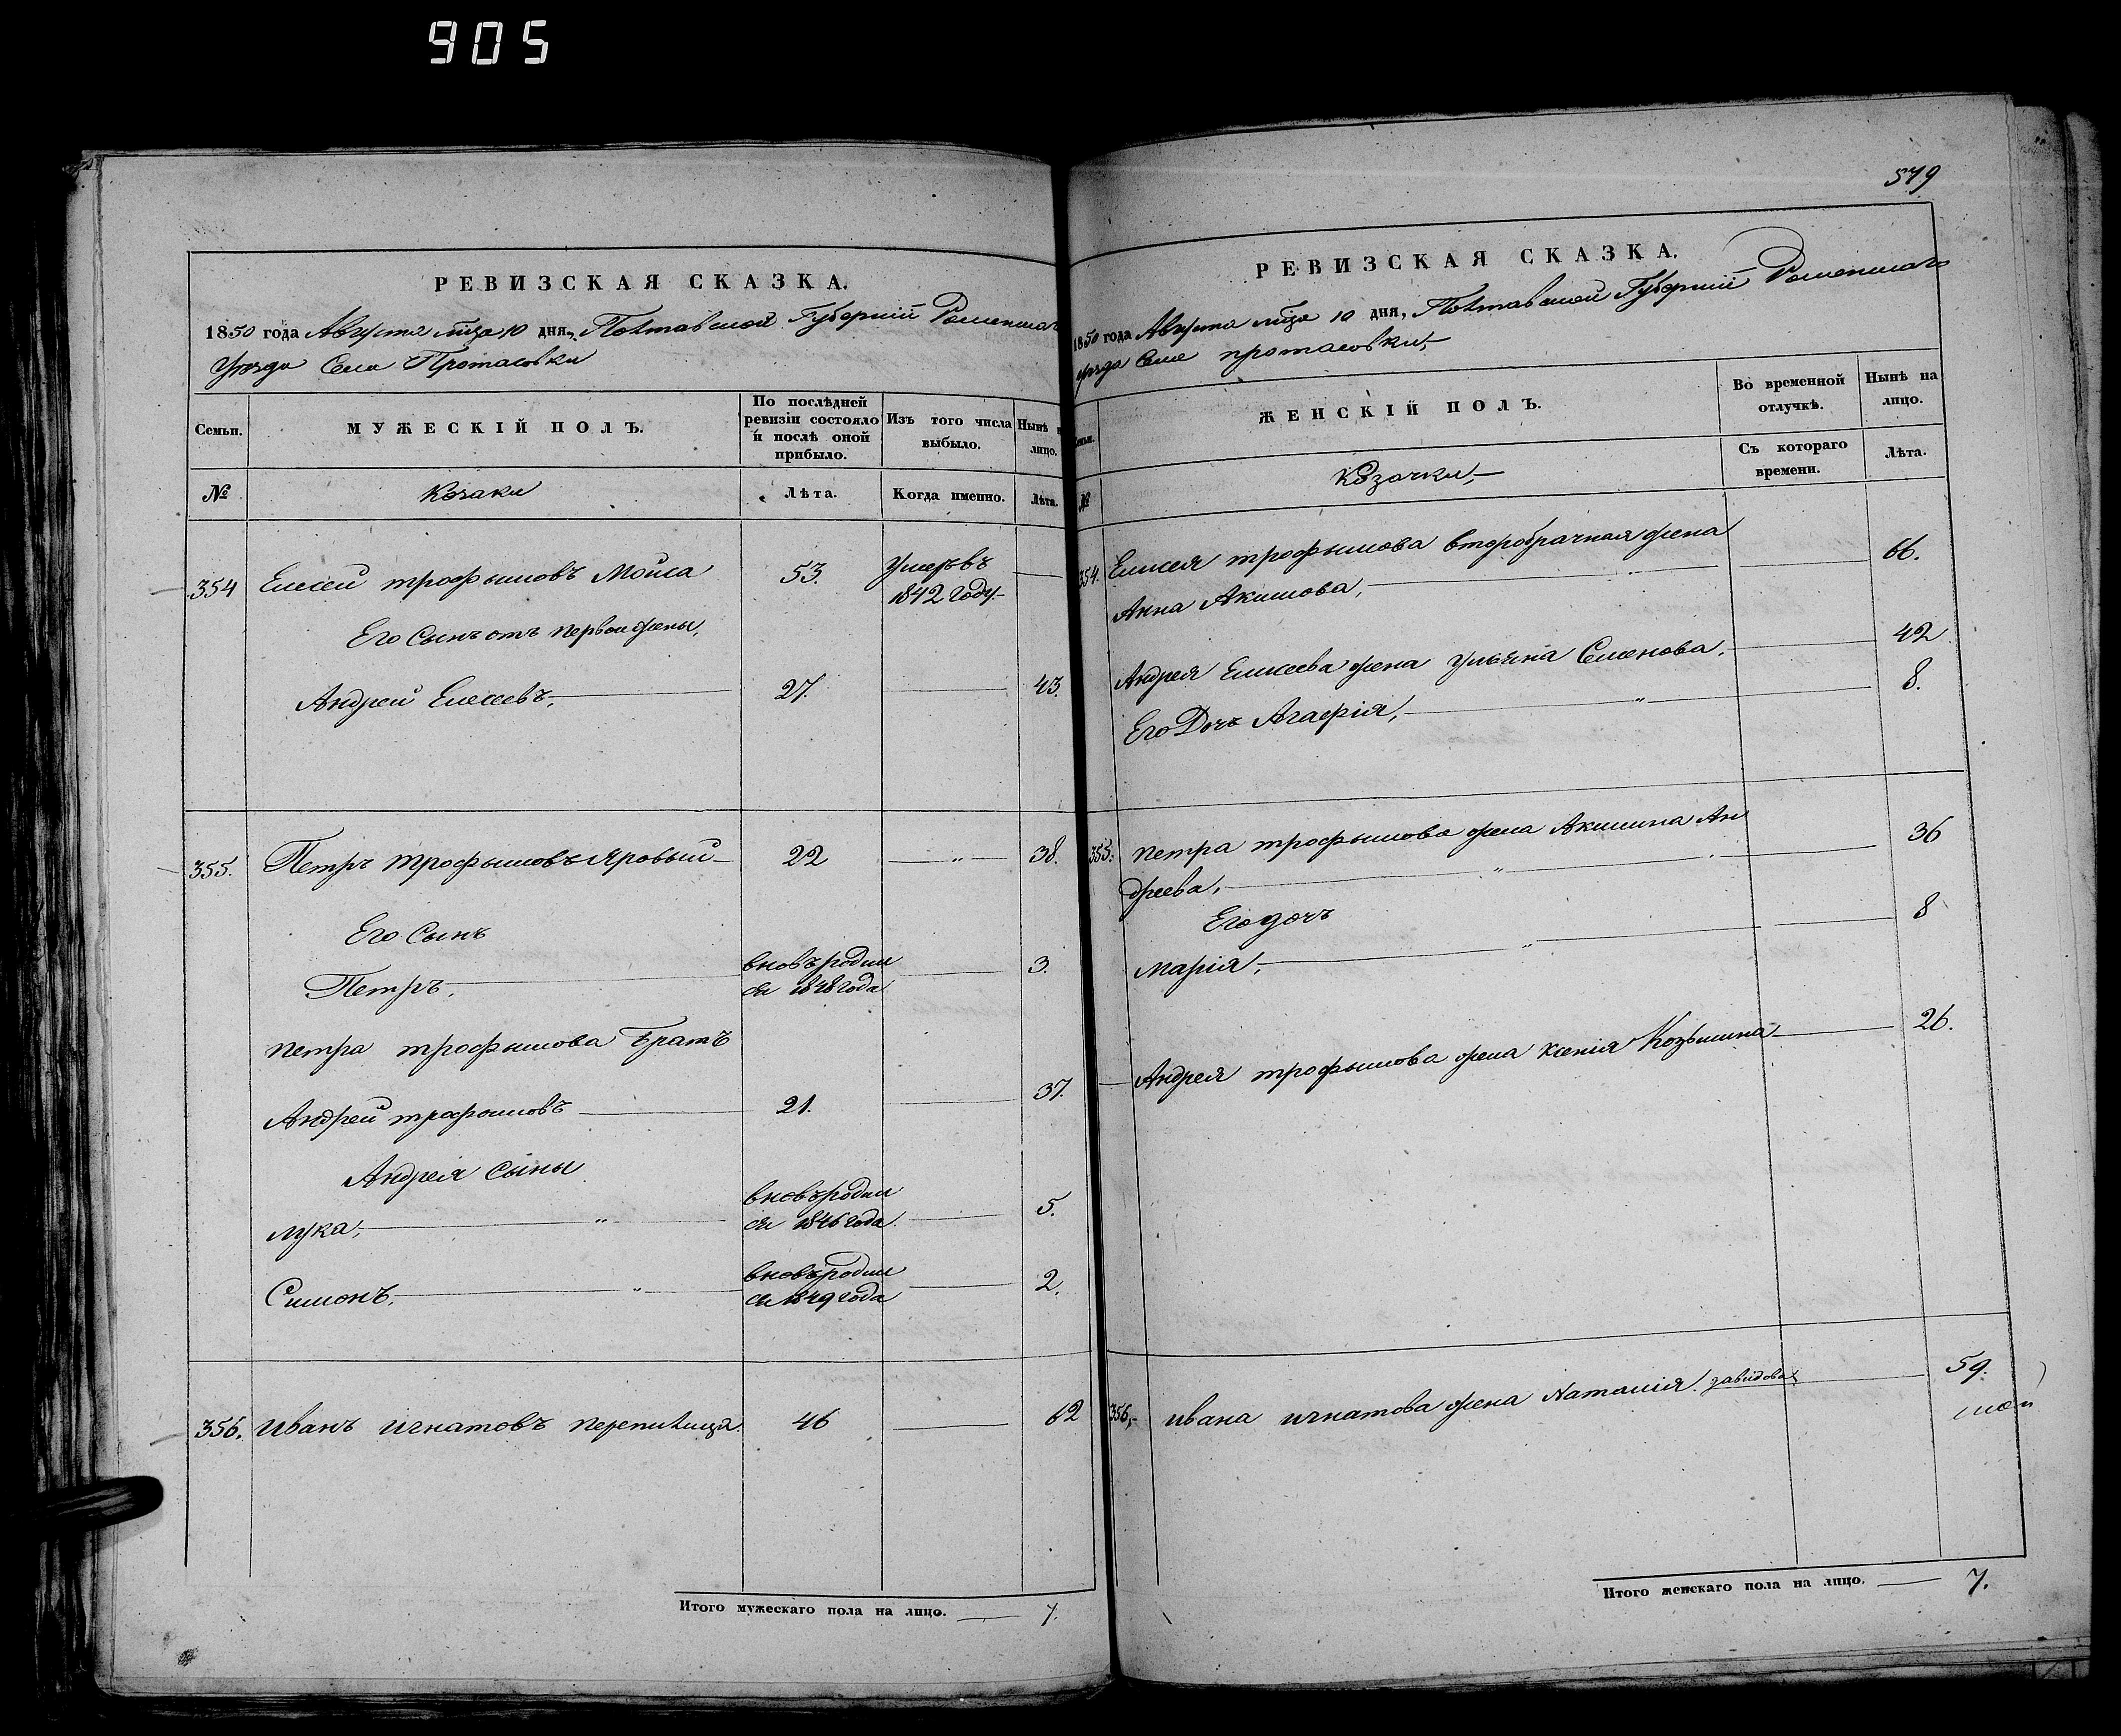 905
РЕВИЗСКАЯ СКАЗКА.
1850 года Августа мца 10 дня, Полтавской Губернии Роменскаго
Уезда Села Протасовки
Семьи.
МУЖЕСКІЙ ПОЛЪ.
По послѣдней ревизіи состояло и послѣ оной прибыло.
Изъ того числа выбыло.
Нынѣ на лицо.
№
Козаки
Лѣта.
Когда именно.
Лѣта.
354 Елисей трофымовъ Мойса 53. Умеръ въ 1842 году
Его Сынъ отъ первой жены,
Андрей Елисеевъ, 27. 43.
355. Петръ трофымовъ Яровый 22 38.
Его Сынъ
Петръ, вновь родился 1848 года 3.
Петра трофымова Братъ
Андрей трофымовъ 21. 37.
Андрея Сыны
лука, вновь родился 1846 года 5.
Симонъ, вновь родился 1849 года 2.
356. Иванъ Игнатовъ перепилица 46 62
Итого мужескаго пола на лицо. 7.
579
РЕВИЗСКАЯ СКАЗКА.
1850 года Августа мца 10 дня, Полтавской Губернии Роменскаго
уезда Села протасовки,
Семьи.
ЖЕНСКІЙ ПОЛЪ.
Во временной отлучкѣ.
Нынѣ на лицо.
№
Козачки,
Съ котораго времени.
Лѣта.
354. Елисея трофымова второбрачная жена
Анна Акимова, 66.
Андрея Елисеева жена Ульяна Семенова, 42
Его Дочь Агафія, 8.
355. петра трофымова жена Акилина Ан
дреева, 36
Его дочь
Марія, 8
Андрея трофымова жена Ксенія Козьмина 26.
356, ивана игнатова жена Наталія 59.
Итого женскаго пола на лицо. 7.